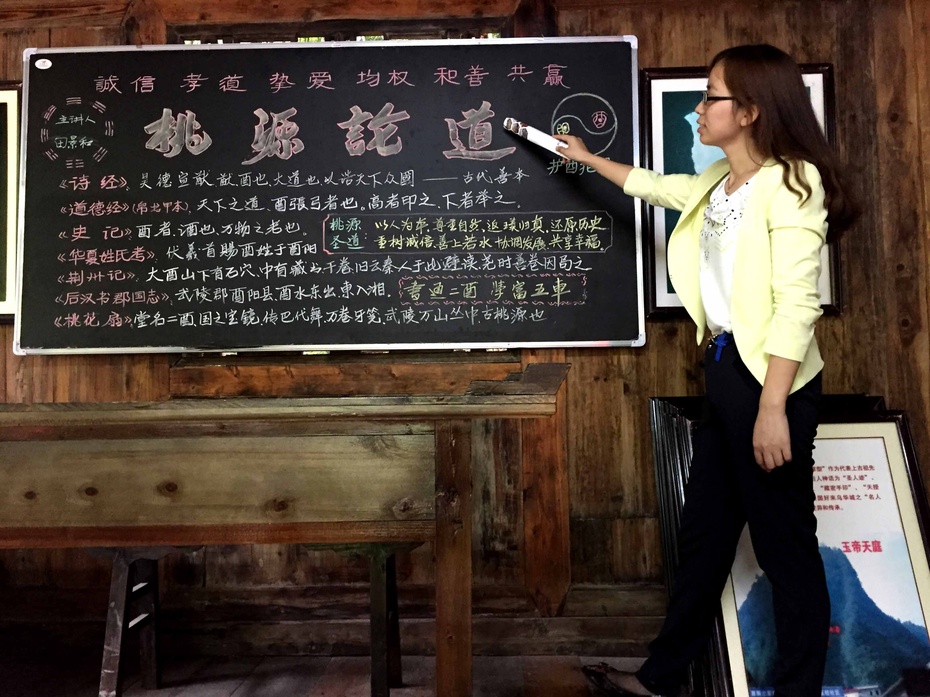 誠信 孝道 挚爱 均权 和善 共赢
主讲人
田景和
桃源論道
《诗经》，昊德宣猷，猷酉也，大道也，以浩天下众國——古代善本
《道德经》（帛书甲本），天下之道，酉張弓者也，高者印之，下者举之。
《史记》酉者，酒也，万物之老也。
桃源
圣道：
以人为本，尊重自然，返璞归真，还原历史
重树诚信，善上若水，协调发展，共享幸福。
《华夏姓氏考》伏羲首賜酉姓于酉阳
《荆州记》，大酉山下有石穴，中有藏书千卷，旧云秦人于此避
《后汉书郡国志》，武陵郡酉阳县，酉水东出，東入湘。
書通二酉 学富五車
《桃花扇》，堂名二酉，国之宝镜，传巴代舞，万卷牙笺，武陵万山丛中，古桃源也
型”作为代表上古祖先
玉帝天庭